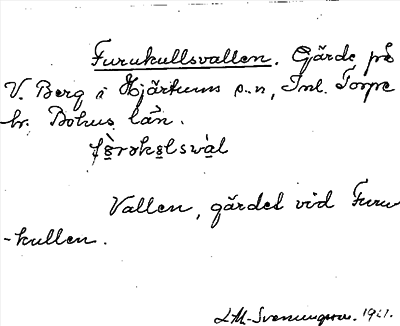 Furukullsvallen. Gärde på
V. Berg i Hjärtums s..n, Inl. Torpe
hr. Bohus län.
Vallen, gärdet vid Furu
-kullen.
1921.